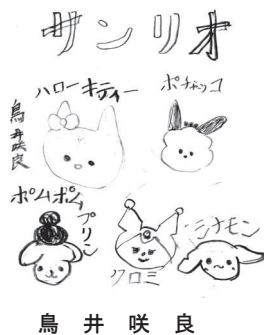 サンリオ
ハローキティー
ポチャッコ
鳥井咲良
ポムポム
プリン
クロミ
シナモン
鳥井咲良